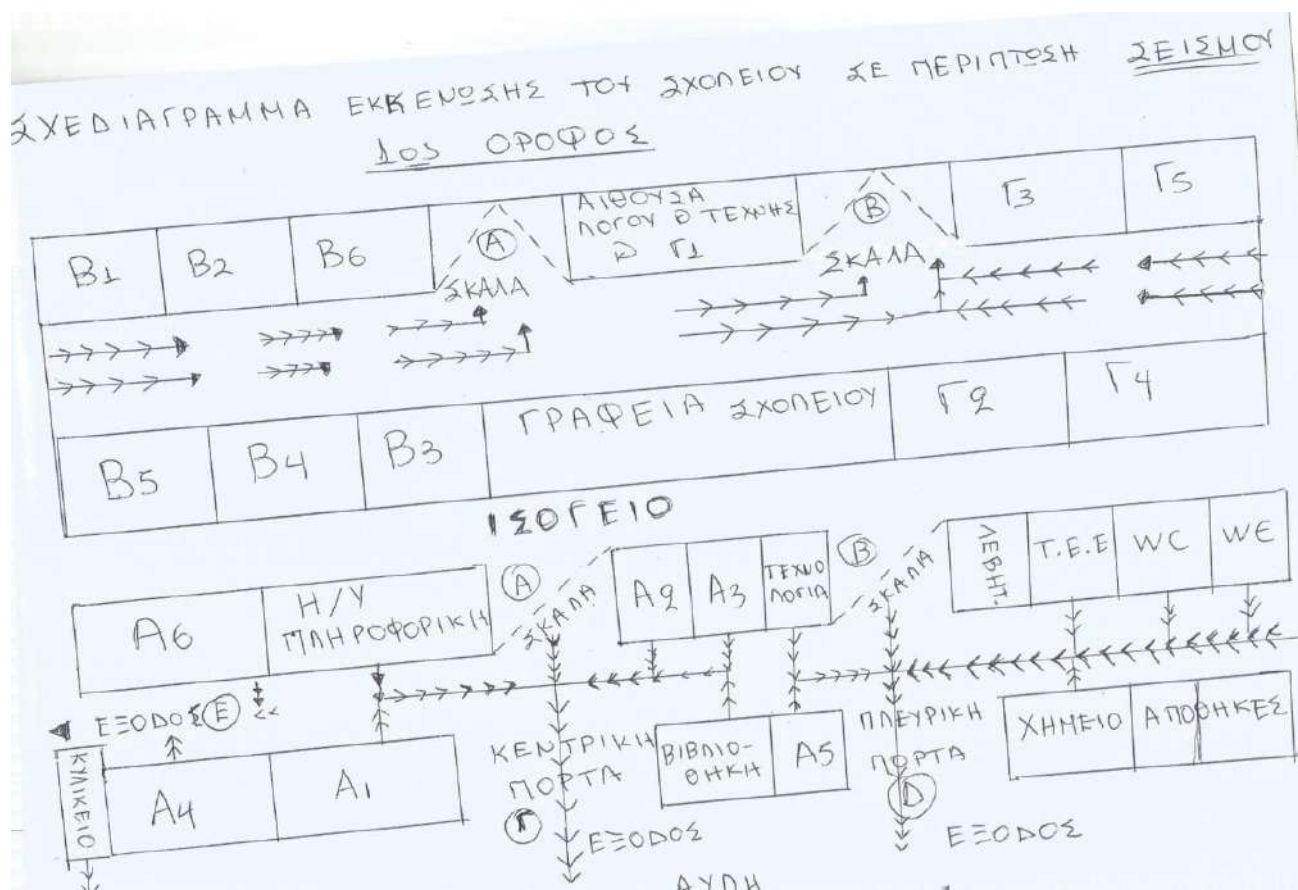 ΣΧΕΔΙΑΓΡΑΜΜΑ ΕΚΚΕΝΩΣΗΣ ΤΟΥ ΣΧΟΛΕΙΟΥ ΣΕ ΠΕΡΙΠΤΩΣΗ ΣΕΙΣΜΟΥ
1ος ΟΡΟΦΟΣ
Β1 Β2 Β6
Α
ΣΚΑΛΑ
ΑΙΘΟΥΣΑ
ΛΟΓΟΥ & ΤΕΧΝΗΣ
& Γ1
Β
ΣΚΑΛΑ
Γ3 Γ5
Β5 Β4 Β3 ΓΡΑΦΕΙΑ ΣΧΟΛΕΙΟΥ Γ2 Γ4
ΙΣΟΓΕΙΟ
Α6
Η/Υ
ΠΛΗΡΟΦΟΡΙΚΗ
Α
ΣΚΑΛΑ
Α2 Α3
ΤΕΧΝΟ
ΛΟΓΙΑ
Β
ΣΚΑΛΑ
ΛΕΒΗΤ.
Τ.Ε.Ε WC WC
ΕΞΟΔΟΣ Ε
ΚΥΛΙΚΕΙΟ
Α4 Α1
ΚΕΝΤΡΙΚΗ
ΠΟΡΤΑ
Γ
ΕΞΟΔΟΣ
ΒΙΒΛΙΟ-
ΘΗΚΗ
Α5
ΠΛΕΥΡΙΚΗ
ΠΟΡΤΑ
D
ΕΞΟΔΟΣ
ΧΗΜΕΙΟ ΑΠΟΘΗΚΕΣ
ΑΥΛΗ